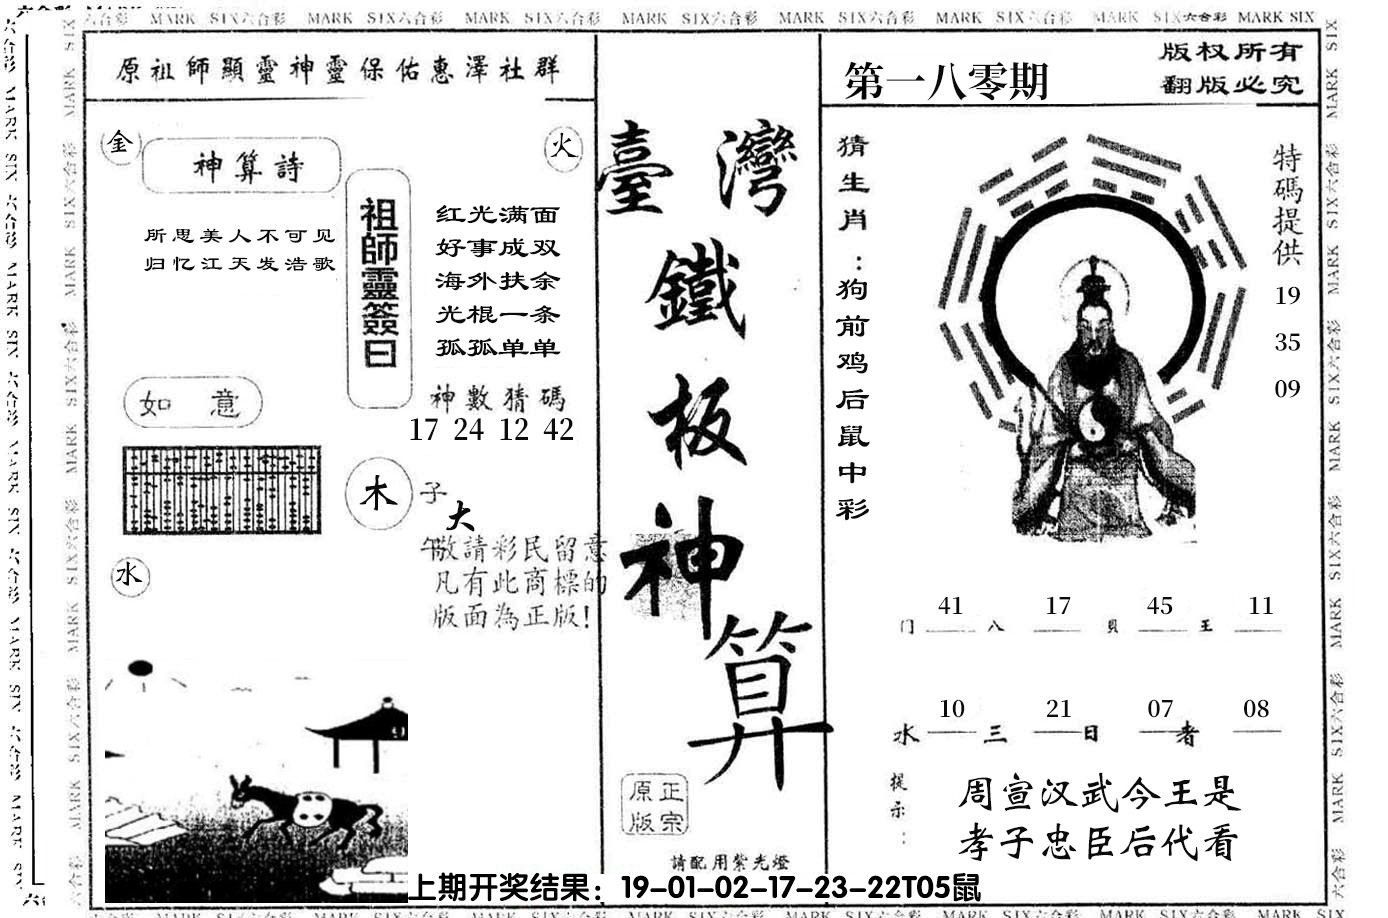 原祖師顯靈神靈保佑惠澤社群
金
神算詩
火
所思美人不可见
归忆江天发浩歌
祖師靈簽曰
红光满面
好事成双
海外扶余
光棍一条
孤孤单单
神數猜碼
17 24 12 42
如 意
木
子
大
午
敬請彩民留意
凡有此商標的
版面為正版!
水
臺灣
鐵
板
神
算
正宗
原版
請配用紫光燈
第一八零期
版权所有
翻版必究
猜生肖：狗前鸡后鼠中彩
特碼提供
19
35
09
门 41 八 17 貝 45 王 11
水 10 三 21 日 07 者 08
提示：
周宣汉武今王是
孝子忠臣后代看
上期开奖结果：19-01-02-17-23-22T05鼠
MARK SIX六合彩 MARK SIX六合彩 MARK SIX六合彩 MARK SIX六合彩 MARK SIX六合彩 MARK SIX六合彩 MARK SIX六合彩 MARK SIX